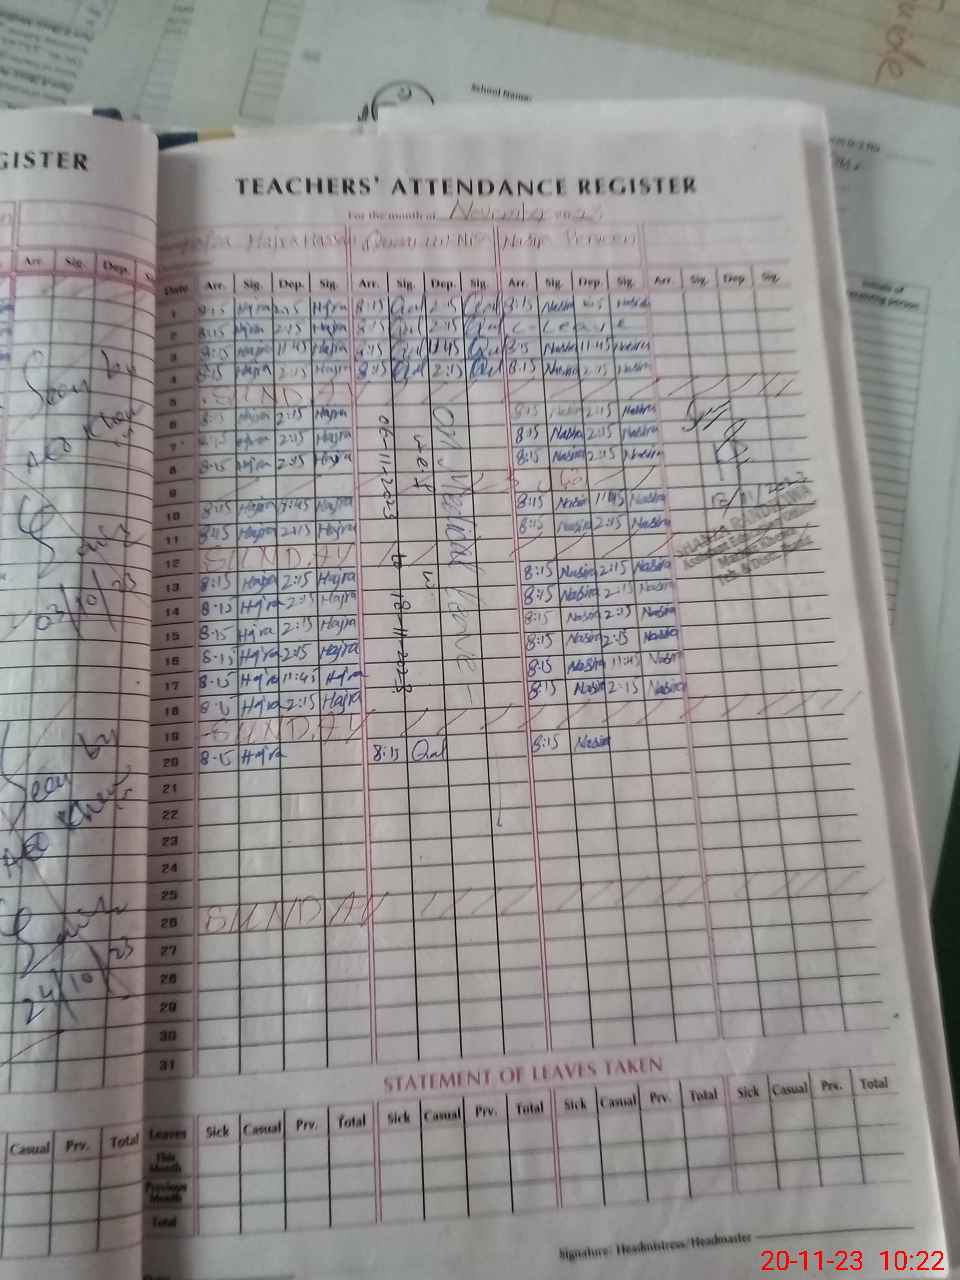 School Name:
GISTER
TEACHERS' ATTENDANCE REGISTER
For the month of November 2023
Hajra Nasir Perveen
Arr. Sig. Dep.
Date Arr. Sig. Dep. Sig. Arr. Sig. Dep. Sig. Arr. Sig. Dep. Sig. Arr. Sig. Dep. Sig.
1 8:15 Hajra 2:15 Hajra 8:15 2:15 8:15 Nasira Nasira
2 8:15 Hajra 2:15 Hajra 8:15 2:15 C-Leave
3 8:15 Hajra 11:45 Hajra 8:15 11:45 8:15 Nasira 11:45 Nasira
4 8:15 Hajra 2:15 Hajra 8:15 2:15 8:15 Nasira 2:15 Nasira
5 SUNDAY
6 8:15 Hajra 2:15 Hajra 8:15 Nasira 2:15 Nasira
7 8:15 Hajra 2:15 Hajra 8:15 Nasira 2:15 Nasira
8 8:15 Hajra 2:15 Hajra 8:15 Nasira 2:15 Nasira
9
10 8:15 Hajra 11:45 Hajra 8:15 Nasira 11:45 Nasira
11 8:15 Hajra 2:15 Hajra 8:15 Nasira 2:15 Nasira
12 SUNDAY
13 8:15 Hajra 2:15 Hajra 8:15 Nasira 2:15 Nasira
14 8:15 Hajra 2:15 Hajra 8:15 Nasira 2:15 Nasira
15 8:15 Hajra 2:15 Hajra 8:15 Nasira 2:15 Nasira
16 8:15 Hajra 2:15 Hajra 8:15 Nasira 2:15 Nasira
17 8:15 Hajra 11:45 Hajra 8:15 Nasira 11:45 Nasira
18 8:15 Hajra 2:15 Hajra 8:15 Nasira 2:15 Nasira
19 SUNDAY
20 8:15 Hajra 8:15 8:15 Nasira
21
22
23
24
25
26 SUNDAY
27
28
29
30
31
On Medical Leave
06-11-2023 to 18-11-2023
Seen by
03/10/23
Seen by
24/10/23
STATEMENT OF LEAVES TAKEN
Casual Prv. Total
Leaves Sick Casual Prv. Total Sick Casual Prv. Total Sick Casual Prv. Total Sick Casual Prv. Total
This Month
Previous Month
Total
Signature: Headmistress/Headmaster
20-11-23 10:22